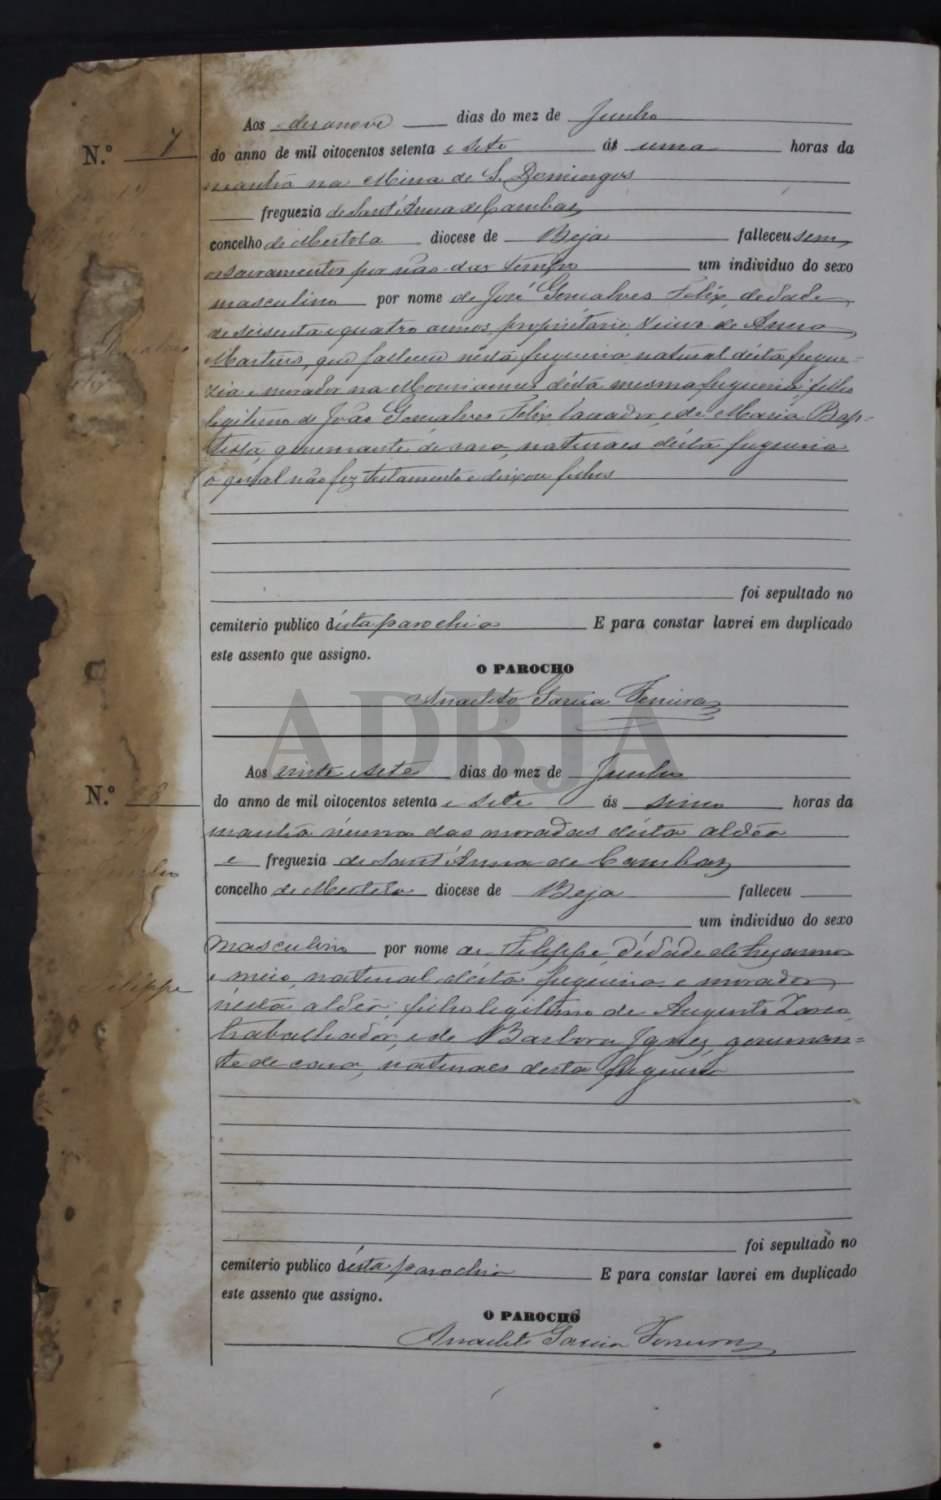 Aos desanove dias do mez de Junho
N.º 7
do anno de mil oitocentos setenta e sete ás uma horas da
manhã na Mina de S. Domingos
freguezia de Sant'Anna de Cambas
concelho de Mertola diocese de Beja falleceu sem
os sacramentos por não dar tempo um individuo do sexo
masculino por nome de José Gonçalves Felix, de idade
de sessenta e quatro annos, proprietario, viuvo de Anna
Martins, que falleceu nésta freguezia natural désta fregue=
zia e morador na désta mesma freguezia, filho
legitimo de João Gonçalves Felix lavrador, e de Maria Bap=
tista, governante de casa, naturaes désta freguezia
o qual não fez testamento e deixou filhos
foi sepultado no
cemiterio publico désta parochia E para constar lavrei em duplicado
este assento que assigno.
O PAROCHO
Anacleto Garcia Ferreira
ADBJA
Aos vinte e sete dias do mez de Junho
N.º 8
do anno de mil oitocentos setenta e sete ás sinco horas da
manhã n'uma das moradas désta aldêa
e freguezia de Sant'Anna de Cambas
Junho
concelho de Mertola diocese de Beja falleceu
um individuo do sexo
masculino por nome de Filippe d'idade de hum anno
e meio, natural désta freguezia e morador
Filippe
nésta aldêa, filho legitimo de Augusto
trabalhador, e de Barbora Ignez, governan=
te de casa, naturaes desta freguezia
foi sepultado no
cemiterio publico désta parochia E para constar lavrei em duplicado
este assento que assigno.
O PAROCHO
Anacleto Garcia Ferreira